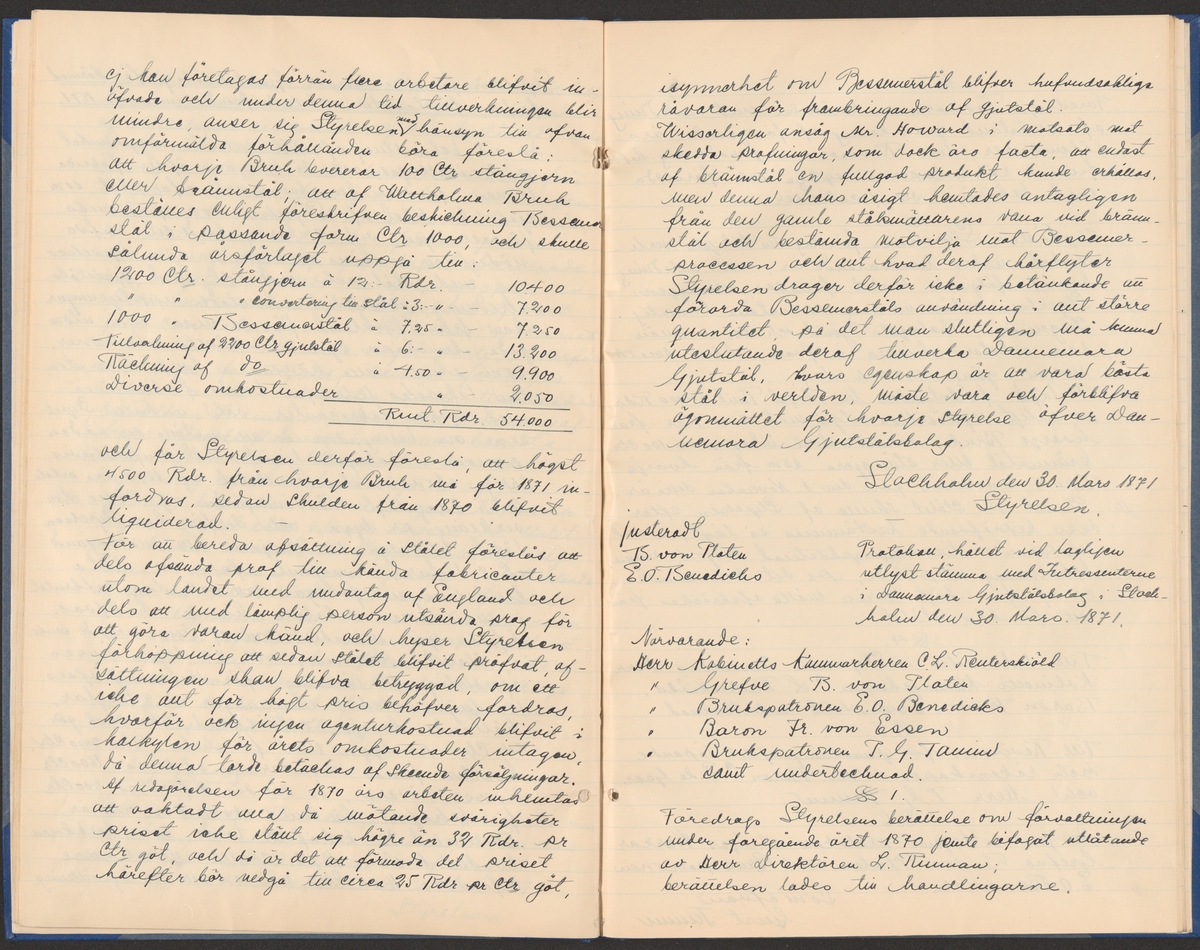 ej kan företagas förrän flera arbetare blifvit in-
öfvade och under denna tid tillverkningen blir
mindre, anser sig Styrelsen med hänsyn till ofvan
omförmälda förhållanden böra föreslå:
att hvarje Bruk levererar 100 Ctr stångjern
eller brännstål; att af Wattholma Bruk
beställes enligt föreskrifven beskickning Bessemer
stål i passande form Ctr 1000, och skulle
sålunda årsförlaget uppgå till:
1200 Ctr. stångjern à 12:- Rdr. - 10400
" " " convertering till stål à 3:- " - 7.200
1000 " Bessemerstål à 7.25 " - 7.250
Tillverkning af 2200 Ctr gjutstål à 6:- " - 13.200
Räckning af do à 4.50 " - 9.900
Diverse omkostnader " - 2.050
Rmt. Rdr. 54.000
och får Styrelsen derför föreslå, att högst
4500 Rdr. från hvarje Bruk må för 1871 in-
fordras, sedan skulden från 1870 blifvit
liquiderad. -
För att bereda afsättning å stålet föreslås att
dels afsända prof till kända fabricanter
utom landet med undantag af England och
dels att med lämplig person utsända prof för
att göra varan känd, och hyser Styrelsen
förhoppning att sedan stålet blifvit pröfvat, af-
sättningen skall blifva betryggad, om ett
icke allt för högt pris behöfver fordras,
hvarför ock ingen agenturkostnad blifvit i
kalkylen för årets omkostnader intagen,
då denna torde betäckas af skeende försäljningar.
Af redogörelsen för 1870 års arbeten inhemtas
att oaktadt alla då mötande svårigheter
priset icke ställt sig högre än 32 Rdr. pr
Ctr göt, och då är det att förmoda det priset
härefter bör nedgå till circa 25 Rdr pr Ctr göt,
isynnerhet om Bessemerstål blifver hufvudsakliga
råvaran för frambringande af gjutstål.
Wisserligen ansåg Mr. Howard i motsats mot
skedda profningar, som dock äro facta, att endast
af brännstål en fullgod produkt kunde erhållas,
men denna hans åsigt hemtades antagligen
från den gamle stålsmältarens vana vid bränn-
stål och bestämda motvilja mot Bessemer-
processen och allt hvad deraf härflyter
Styrelsen drager derför icke i betänkande att
förorda Bessemerståls användning i allt större
quantitet, på det man slutligen må kunna
uteslutande deraf tillverka Dannemora
Gjutstål, hvars egenskap är att vara bästa
stål i verlden, måste vara och förblifva
ögonmålet för hvarje styrelse öfver Dan-
nemora Gjutstålsbolag.
Stockholm den 30. Mars 1871
Styrelsen.
justeradt
B. von Platen
E.O. Benedicks
Protokoll, hållet vid lagligen
utlyst stämma med Intressenterne
i Dannemora Gjutstålsbolag i Stock-
holm den 30. Mars. 1871.
Närvarande:
Herr Kabinetts Kammarherren C.L. Reuterskiöld
" Grefve B. von Platen
" Brukspatronen E.O. Benedicks
" Baron Fr. von Essen
" Brukspatronen T. G. Tamm
samt undertecknad.
§ 1.
Föredrogs Styrelsens berättelse om förvaltningen
under föregående året 1870 jemte bifogat utlåtande
av Herr Direktören L. Rinman;
berättelsen lades till handlingarne.